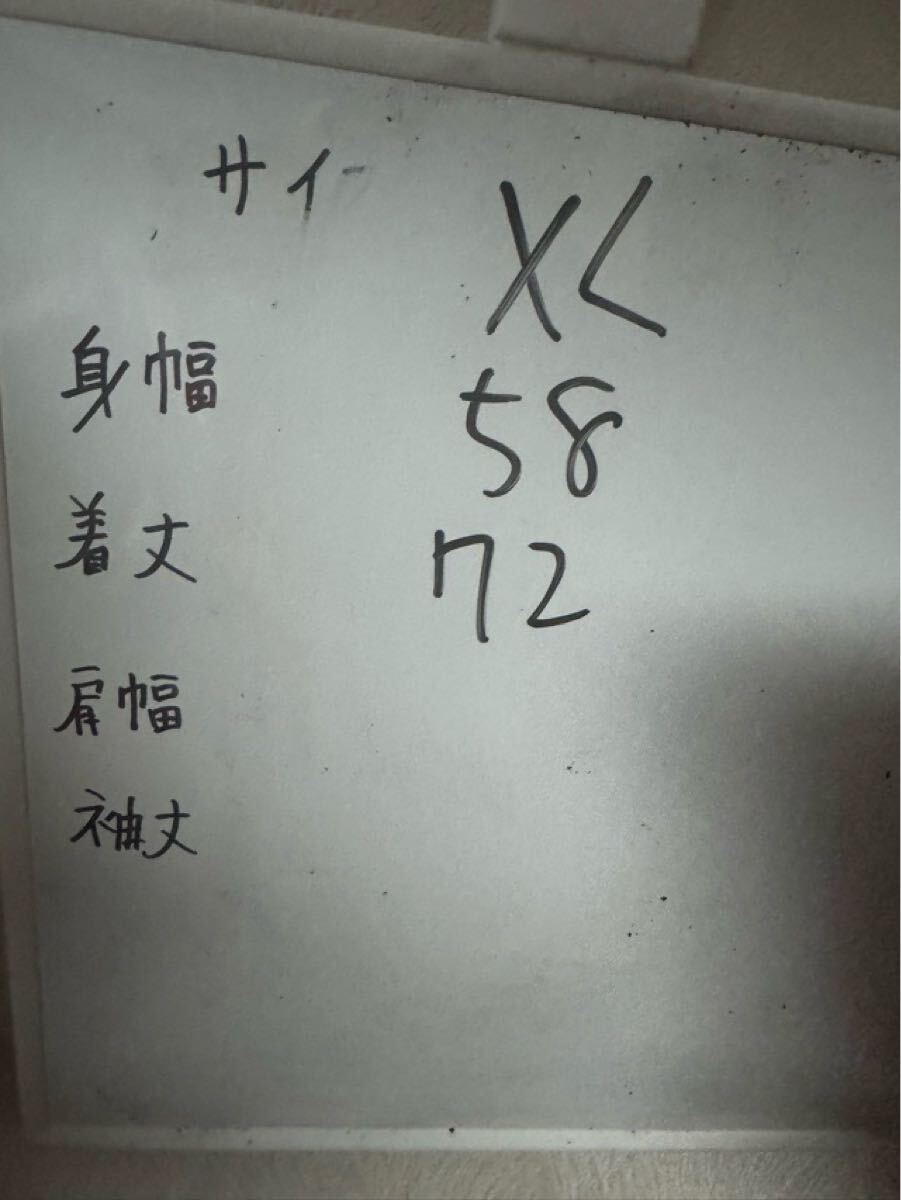 サイ XL
身幅 58
着丈 72
肩幅
袖丈